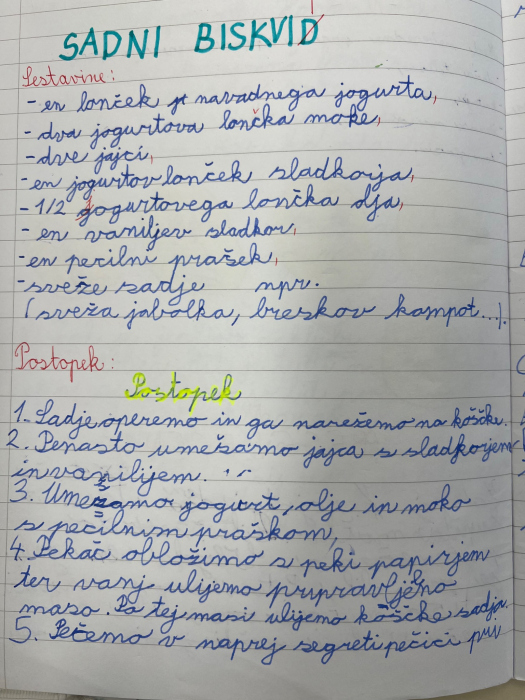 SADNI BISKVID
Sestavine:
- en lonček navadnega jogurta,
- dva jogurtova lončka moke,
- dve jajci,
- en jogurtov lonček sladkorja,
- 1/2 jogurtovega lončka olja,
- en vaniljev sladkor,
- en pecilni prašek,
- sveže sadje npr.
(sveža jabolka, breskov kompot...).
Postopek:
Postopek
1. Sadje operemo in ga narežemo na koščke.
2. Penasto umešamo jajca s sladkorjem
in vanilijem.
3. Umešamo jogurt, olje in moko
s pecilnim praškom,
4. Pekač obložimo s peki papirjem
ter vanj ulijemo pripravljeno
maso. Po tej masi ulijemo koščke sadja.
5. Pečemo v naprej segreti pečici pri